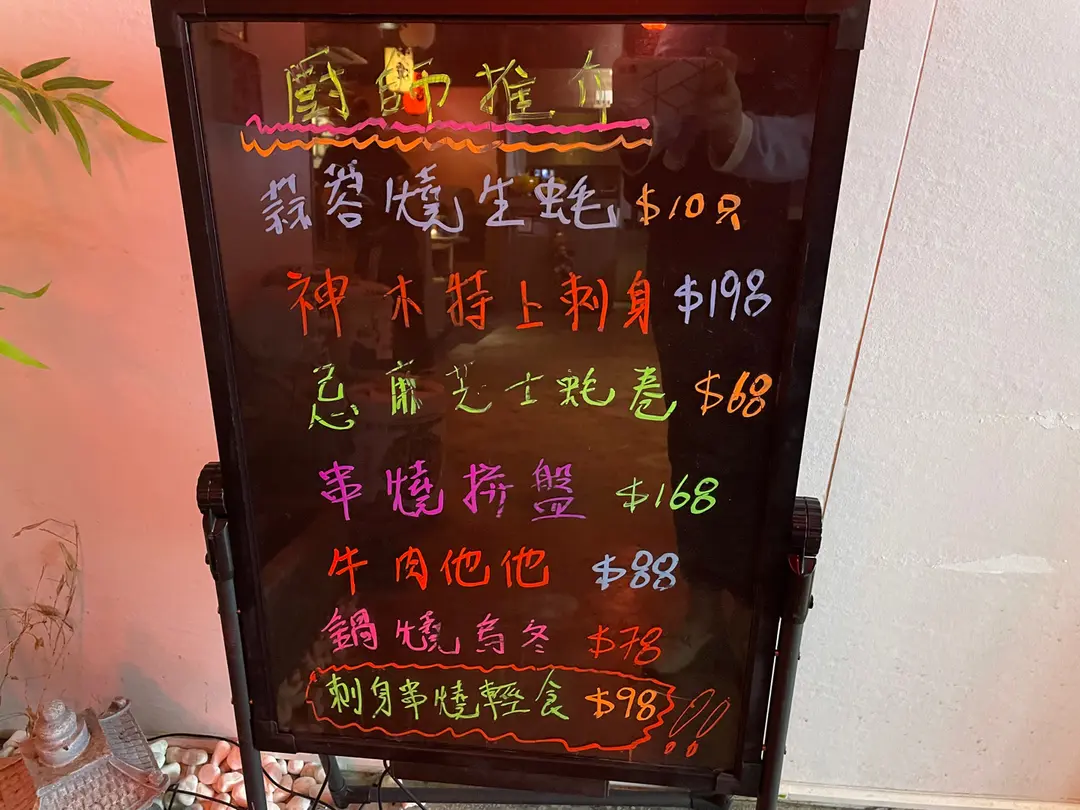 廚師推介
蒜蓉燒生蚝 $108
神木特上刺身 $198
忌廉芝士蚝卷 $68
串燒拼盤 $168
牛肉他他 $88
鍋燒烏冬 $78
刺身串燒輕食 $98!!